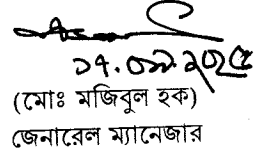 ১৭.০৯.২০২৫
(মোঃ মজিবুল হক)
জেনারেল ম্যানেজার